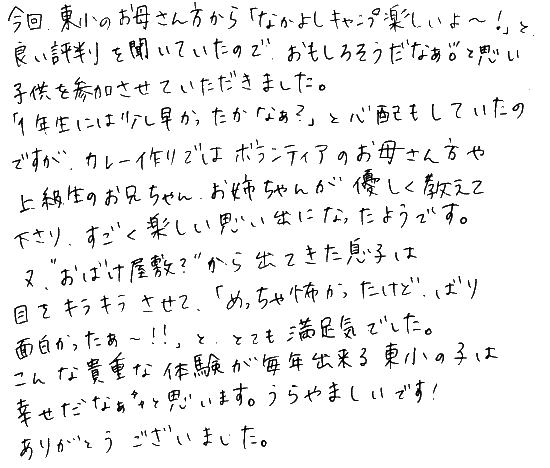 今回、東小のお母さん方から「なかよしキャンプ楽しいよ～!」と、
良い評判を聞いていたので、おもしろそうだなぁ。と思い
子供を参加させていただきました。
「1年生には少し早かったかなぁ?」と心配もしていたの
ですが、カレー作りではボランティアのお母さん方や
上級生のお兄ちゃん、お姉ちゃんが優しく教えて
下さり、すごく楽しい思い出になったようです。
又、"おばけ屋敷?"から出てきた息子は
目をキラキラさせて、「めっちゃ怖かったけど、ばり
面白かったぁ～!!」と、とても満足気でした。
こんな貴重な体験が毎年出来る東小の子は
幸せだなぁ、と思います。うらやましいです!
ありがとうございました。